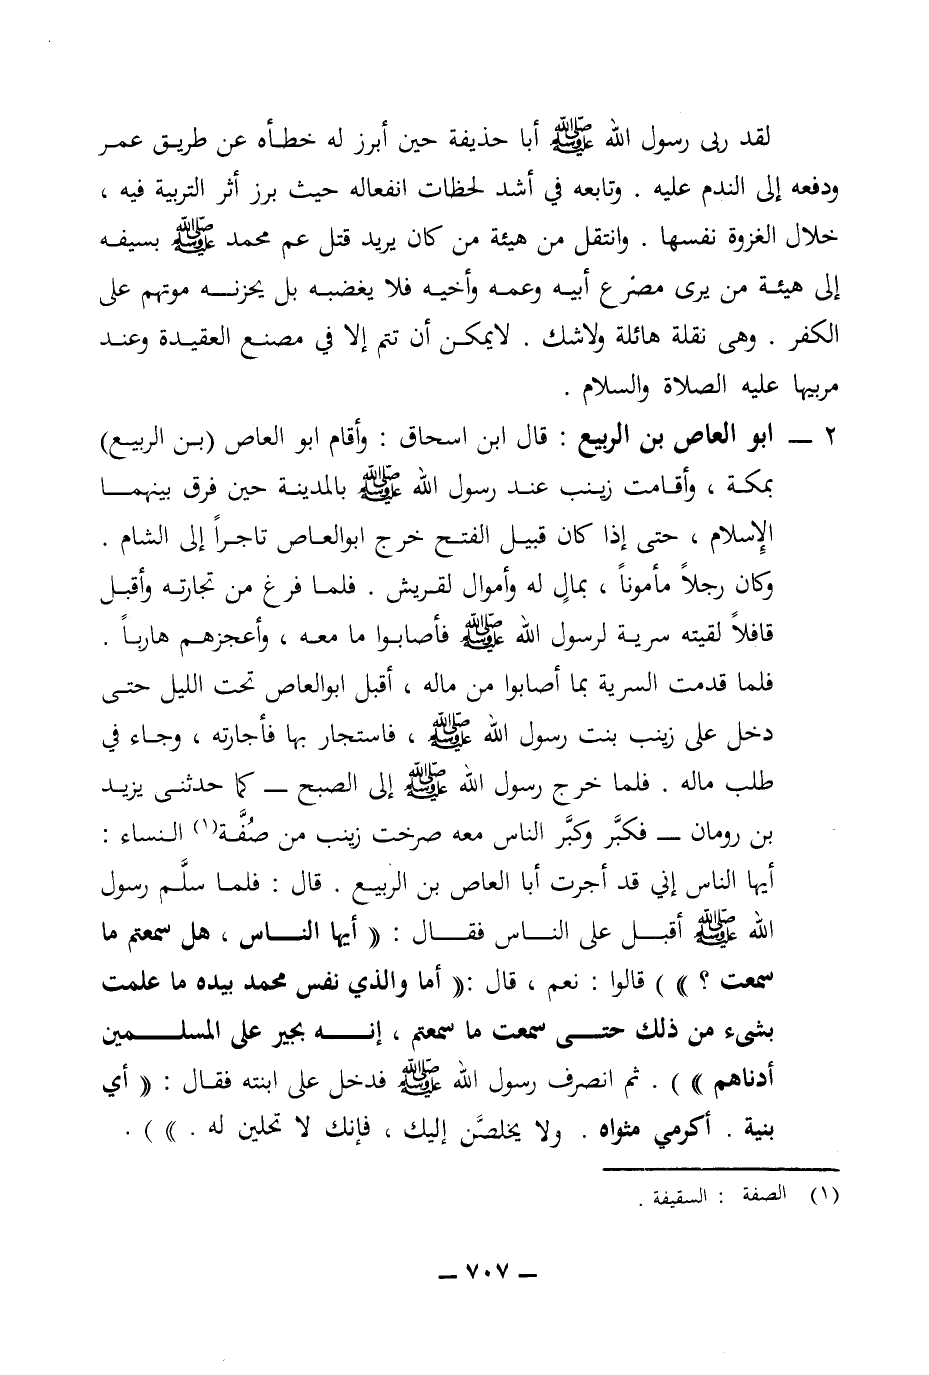 لقد ربى رسول الله ﷺ أبا حذيفة حين أبرز له خطأه عن طريق عمر
ودفعه إلى الندم عليه . وتابعه في أشد لحظات انفعاله حيث برز أثر التربية فيه ،
خلال الغزوة نفسها . وانتقل من هيئة من كان يريد قتل عم محمد ﷺ بسيفه
إلى هيئة من يرى مصْرع أبيه وعمه وأخيه فلا يغضبه بل يحزنه موتهم على
الكفر . وهى نقلة هائلة ولاشك . لايمكن أن تتم إلا في مصنع العقيدة وعند
مربيها عليه الصلاة والسلام .
٢ ــ ابو العاص بن الربيع : قال ابن اسحاق : وأقام ابو العاص (بن الربيع)
بمكة ، وأقامت زينب عند رسول الله ﷺ بالمدينة حين فرق بينهما
الإسلام ، حتى إذا كان قبيل الفتح خرج ابوالعاص تاجراً إلى الشام .
وكان رجلاً مأموناً ، بمالٍ له وأموال لقريش . فلما فرغ من تجارته وأقبل
قافلاً لقيته سرية لرسول الله ﷺ فأصابوا ما معه ، وأعجزهم هارباً .
فلما قدمت السرية بما أصابوا من ماله ، أقبل ابوالعاص تحت الليل حتى
دخل على زينب بنت رسول الله ﷺ ، فاستجار بها فأجارته ، وجاء في
طلب ماله . فلما خرج رسول الله ﷺ إلى الصبح ــ كما حدثنى يزيد
بن رومان ــ فكبَّر وكبَّر الناس معه صرخت زينب من صُفَّة(١) النساء :
أيها الناس إني قد أجرت أبا العاص بن الربيع . قال : فلما سلَّم رسول
الله ﷺ أقبل على الناس فقال : (( أيها الناس ، هل سمعتم ما
سمعت ؟ )) ) قالوا : نعم ، قال :(( أما والذي نفس محمد بيده ما علمت
بشىء من ذلك حتى سمعت ما سمعتم ، إنه يجير على المسلمين
أدناهم )) ) . ثم انصرف رسول الله ﷺ فدخل على ابنته فقال : (( أي
بنية . أكرمي مثواه . ولا يخلصَّن إليك ، فإنك لا تحلين له . )) ) .
(١) الصفة : السقيفة .
ــ ٧٠٧ ــ